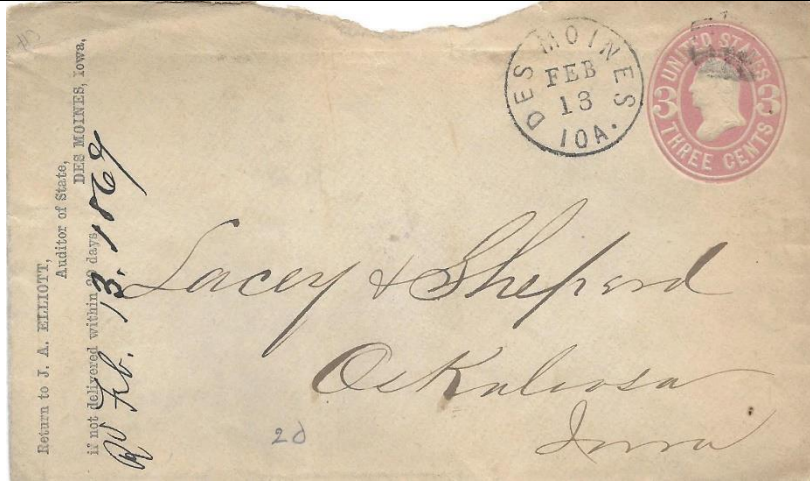 Return to J. A. ELLIOTT,
Auditor of State,
DES MOINES, Iowa,
if not delivered within 20 days.
Feb. 13. 1869
DES MOINES
FEB
13
IOA.
UNITED STATES
3 3
THREE CENTS
Lacey & Sheperd
Oskaloosa
Iowa
20